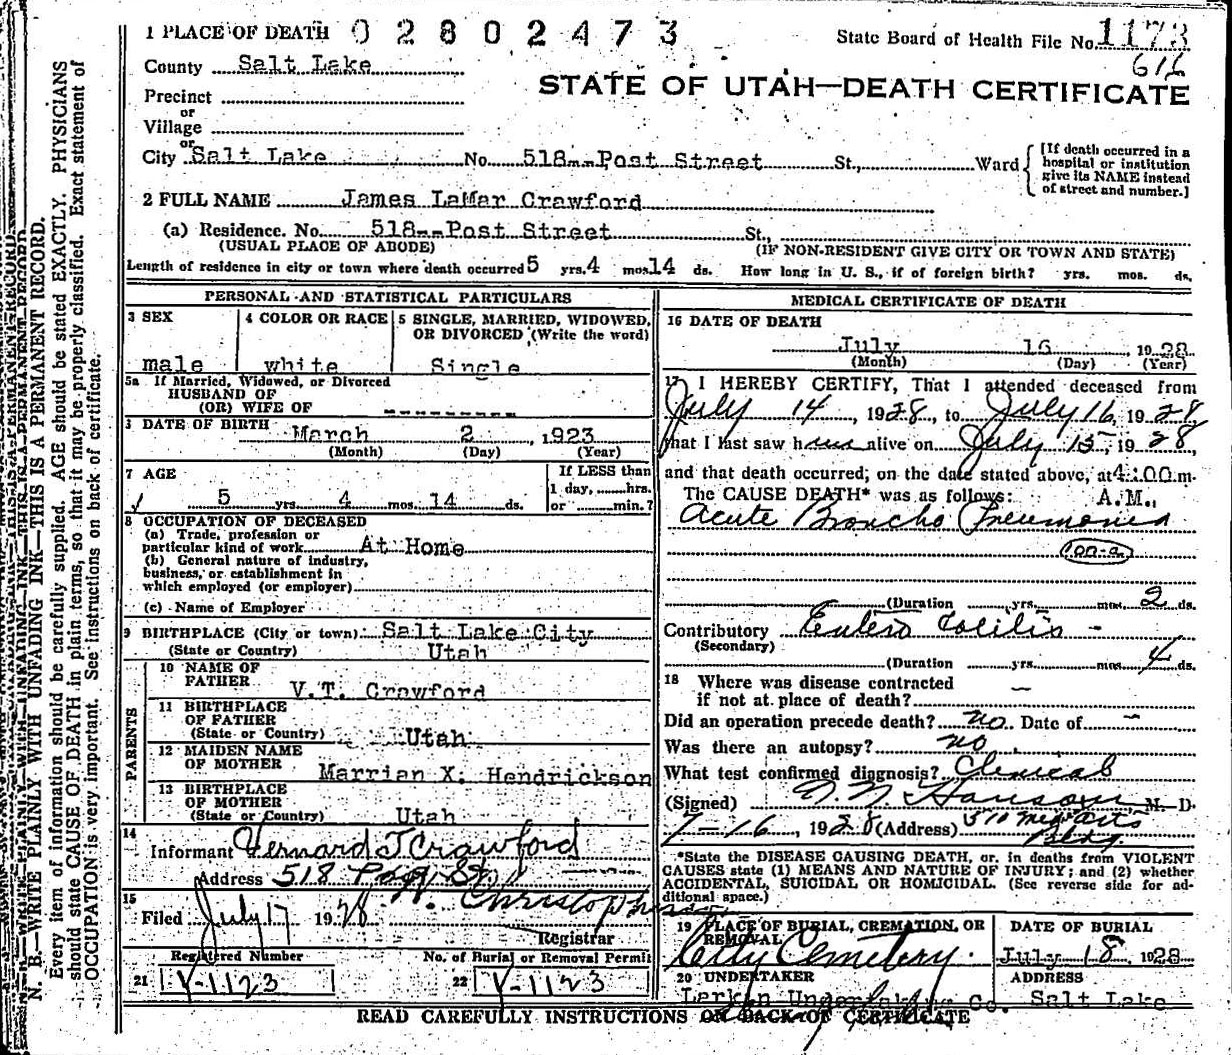 1 PLACE OF DEATH 02802473 State Board of Health File No. 1173
616
County Salt Lake
STATE OF UTAH—DEATH CERTIFICATE
Precinct
or
Village
or
City Salt Lake No. 518--Post Street St., Ward
[If death occurred in a hospital or institution give its NAME instead of street and number.]
2 FULL NAME James LaMar Crawford
(a) Residence. No. 518--Post Street St.,
(USUAL PLACE OF ABODE) (IF NON-RESIDENT GIVE CITY OR TOWN AND STATE)
Length of residence in city or town where death occurred 5 yrs. 4 mos. 14 ds. How long in U. S., if of foreign birth? yrs. mos. ds.
PERSONAL AND STATISTICAL PARTICULARS
3 SEX
male
4 COLOR OR RACE
white
5 SINGLE, MARRIED, WIDOWED, OR DIVORCED (Write the word)
Single
5a If Married, Widowed, or Divorced
HUSBAND OF
(OR) WIFE OF ---------
DATE OF BIRTH
March 2, 1923
(Month) (Day) (Year)
7 AGE
5 yrs. 4 mos. 14 ds.
If LESS than
1 day, ...... hrs.
or ...... min.?
8 OCCUPATION OF DECEASED
(a) Trade, profession or
particular kind of work At Home
(b) General nature of industry,
business, or establishment in
which employed (or employer)
(c) Name of Employer
9 BIRTHPLACE (City or town) Salt Lake City
(State or Country) Utah
PARENTS
10 NAME OF
FATHER V.T. Crawford
11 BIRTHPLACE
OF FATHER
(State or Country) Utah
12 MAIDEN NAME
OF MOTHER Marrian X. Hendrickson
13 BIRTHPLACE
OF MOTHER
(State or Country) Utah
14
Informant Vernard T Crawford
Address 518 Post St.
15
Filed July 17 1928 Christopherson
Registrar
Registered Number No. of Burial or Removal Permit
21 V-1123 22 V-1123
MEDICAL CERTIFICATE OF DEATH
16 DATE OF DEATH
July 16, 1928
(Month) (Day) (Year)
17 I HEREBY CERTIFY, That I attended deceased from
July 14, 1928, to July 16, 1928
that I last saw him alive on July 15, 1928,
and that death occurred, on the date stated above, at 4:00 m.
The CAUSE DEATH* was as follows: A.M.,
Acute Broncho Pneumonia
100-a
(Duration yrs. mos. 2 ds.
Contributory Entero Colitis -
(Secondary)
(Duration yrs. mos. 4 ds.
18 Where was disease contracted
if not at place of death? —
Did an operation precede death? no Date of —
Was there an autopsy? no
What test confirmed diagnosis? Clinical
(Signed) Hanson, M. D.
7-16, 1928 (Address) 510 Med Arts
Bldg.
*State the DISEASE CAUSING DEATH, or, in deaths from VIOLENT
CAUSES state (1) MEANS AND NATURE OF INJURY; and (2) whether
ACCIDENTAL, SUICIDAL OR HOMICIDAL. (See reverse side for additional space.)
19 PLACE OF BURIAL, CREMATION, OR
REMOVAL
City Cemetery.
DATE OF BURIAL
July 18, 1928
20 UNDERTAKER ADDRESS
Larkin Undertaking Co. Salt Lake
READ CAREFULLY INSTRUCTIONS ON BACK OF CERTIFICATE
N. B.—WRITE PLAINLY WITH UNFADING INK—THIS IS A PERMANENT RECORD.
Every item of information should be carefully supplied. AGE should be stated EXACTLY. PHYSICIANS
should state CAUSE OF DEATH in plain terms, so that it may be properly classified. Exact statement of
OCCUPATION is very important. See instructions on back of certificate.